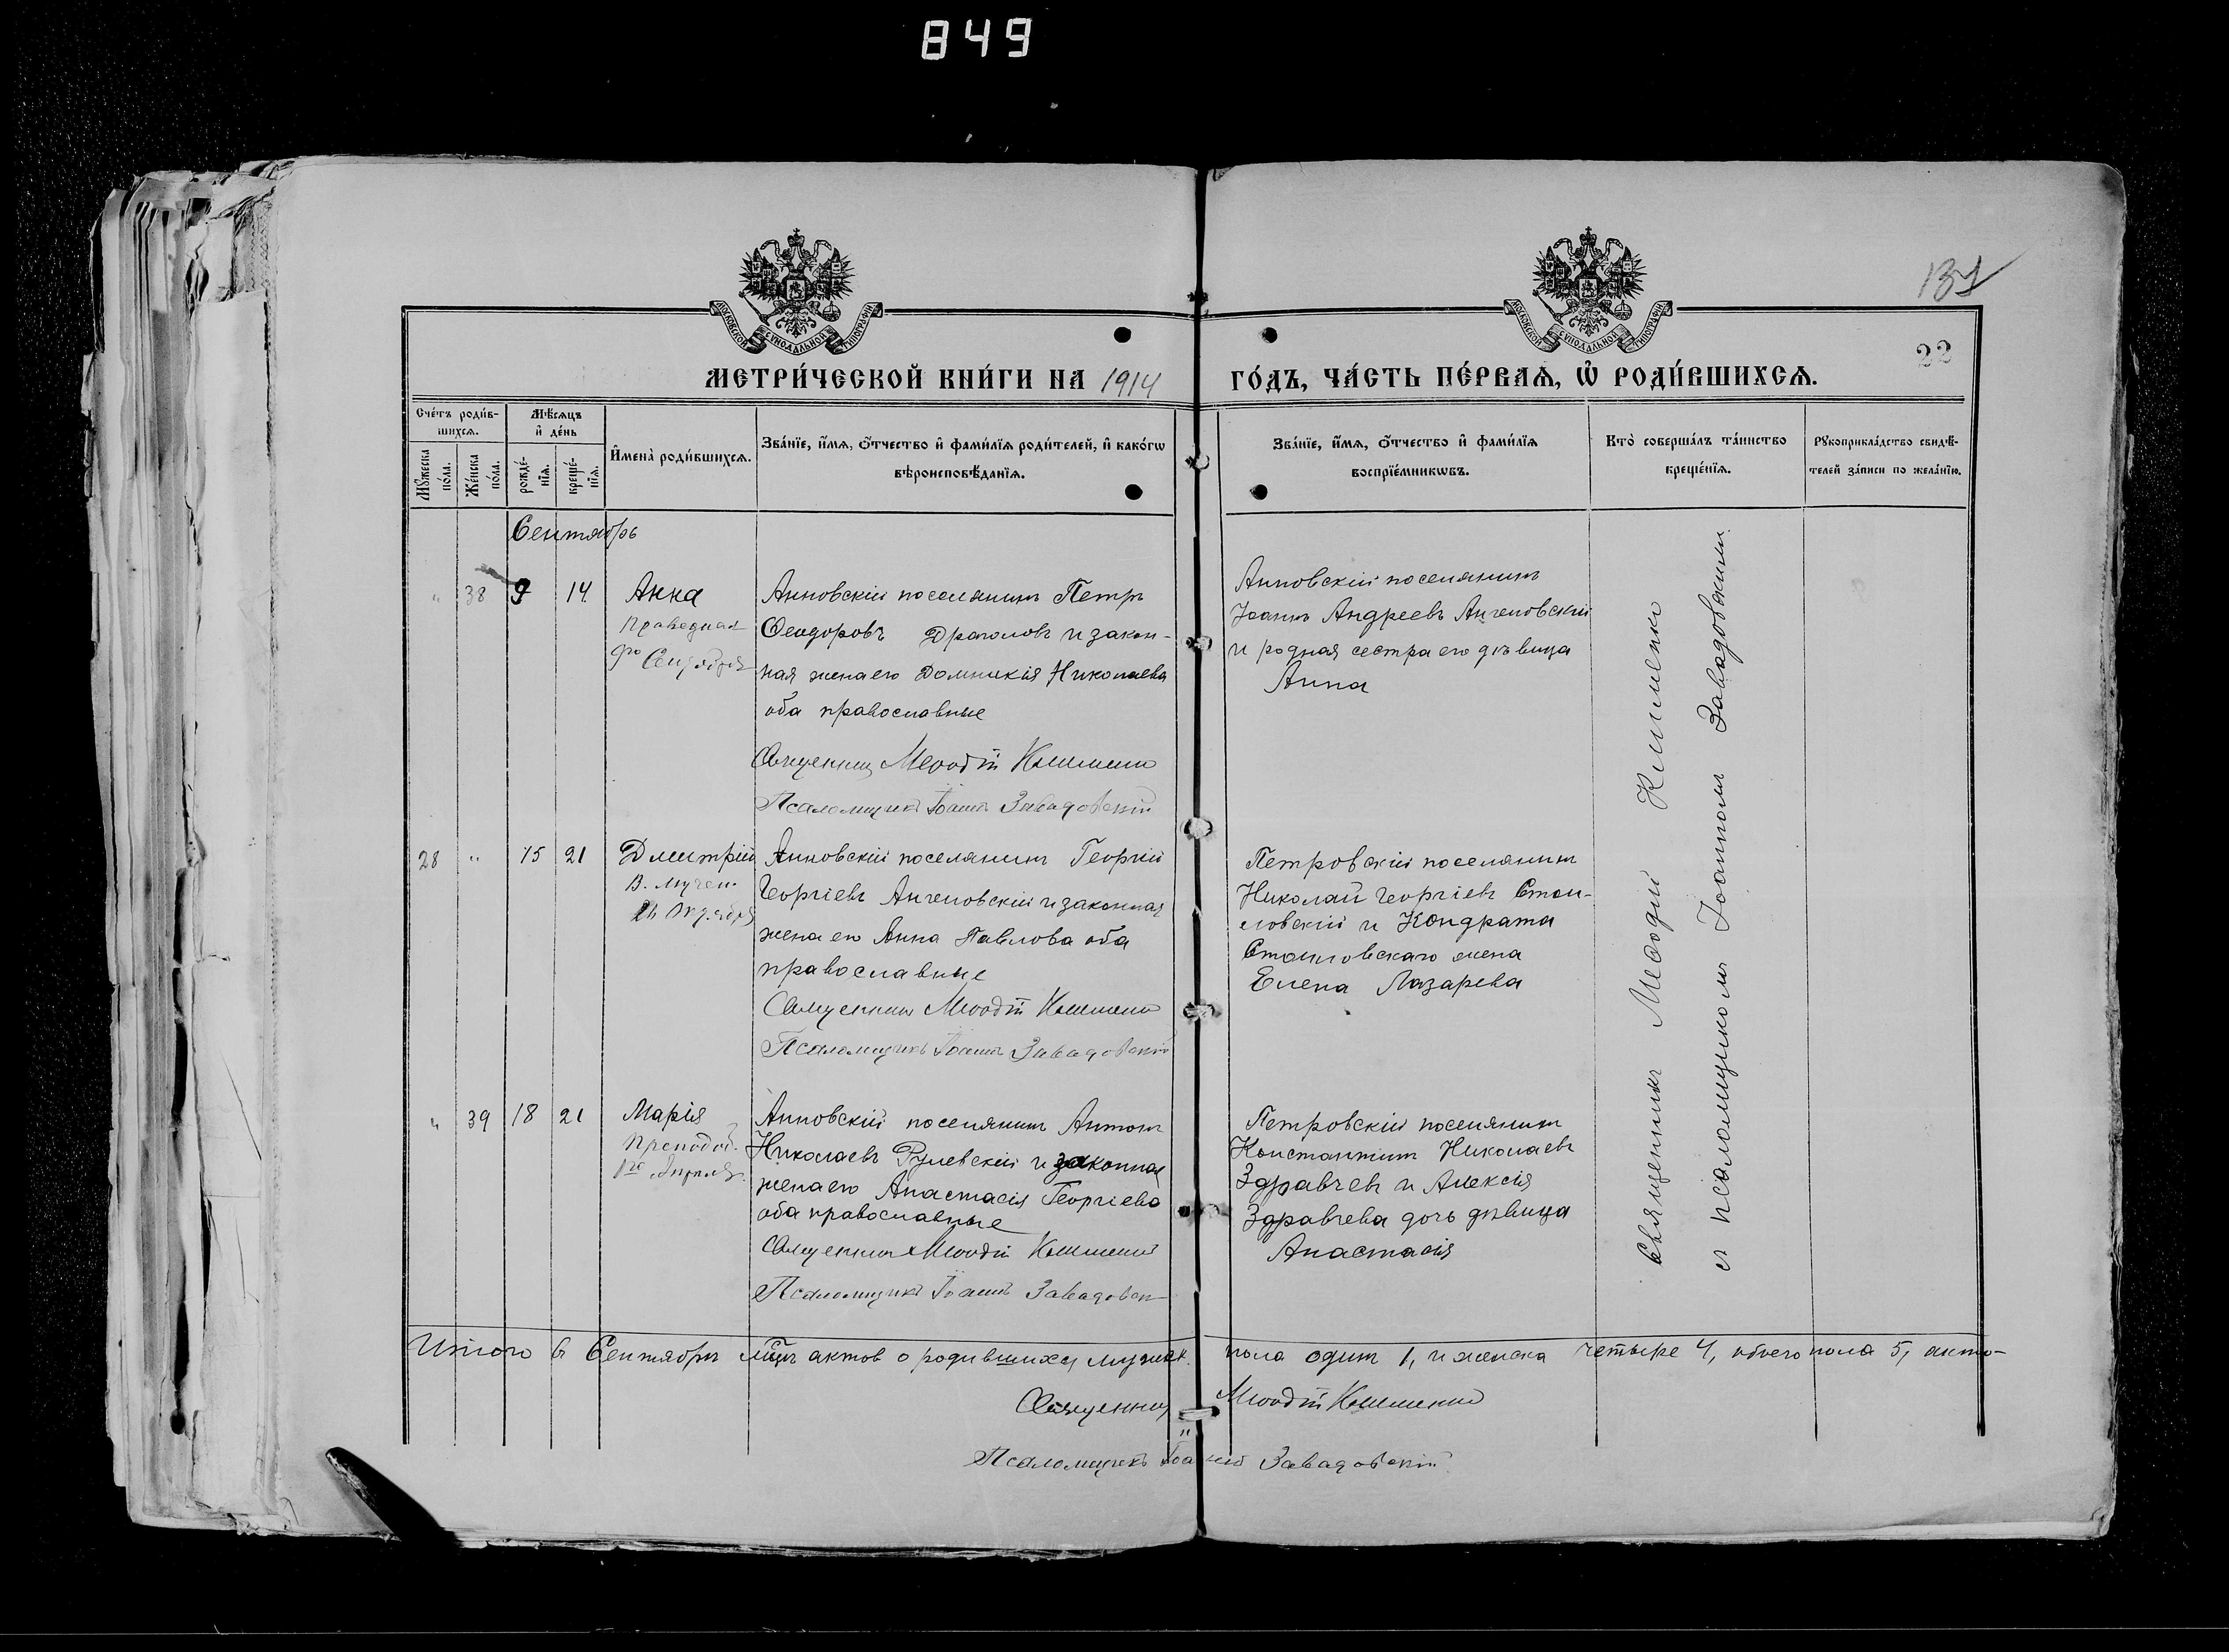 849
137
22
МОСКОВСКОЙ СѴНОДАЛЬНОЙ ТИПОГРАФІИ
МОСКОВСКОЙ СѴНОДАЛЬНОЙ ТИПОГРАФІИ
МЕТРИ́ЧЕСКОЙ КНИ́ГИ НА 1914 ГО́ДЪ, ЧА́СТЬ ПЕ́РВАѦ, Ѽ РОДИ́ВШИХСѦ.
Сче́тъ роди́в-
шихсѧ.
Мꙋ́жеска по́ла.
Же́нска по́ла.
Мѣ́сѧцъ
и҆ де́нь
рожде́-
нїѧ.
креще́-
нїѧ.
И҆мена̀ роди́вшихсѧ.
Зва́нїе, и҆́мѧ, ѻ҆́тчество и҆ фами́лїѧ роди́телей, и҆ како́гѡ
вѣроисповѣ́данїѧ.
Зва́нїе, и҆́мѧ, ѻ҆́тчество и҆ фами́лїѧ
воспрїе́мникѡвъ.
Кто̀ соверша́лъ та́инство
креще́нїѧ.
Рꙋкоприкла́дство свидѣ́-
телей за́писи по жела́нїю.
Сентябрь
" 38 9 14
Анна
Праведная
9го Сентября
Анновскій поселянинъ Петръ
Ѳеодоровъ Драголовъ и закон-
ная жена его Домникія Николаева
оба православные
Священникъ Меѳодій Клименко
Псаломщикъ Іоаннъ Завадовскій
Анновскій поселянинъ
Іоаннъ Андреевъ Ангеловскій
и родная сестра его дѣвица
Анна
28 " 15 21
Дмитрій
В. мучен.
26 Октября
Анновскій поселянинъ Георгій
Георгіевъ Ангеловскій и законная
жена его Анна Павлова оба
православные
Священникъ Меѳодій Клименко
Псаломщикъ Іоаннъ Завадовскій
Петровскій поселянинъ
Николай Георгіевъ Стои-
ловскій и Кондрата
Стоиловскаго жена
Елена Лазарева
" 39 18 21
Марія
Преподоб.
1го Апреля
Анновскій поселянинъ Антонъ
Николаевъ Рулевскій и законная
жена его Анастасія Георгіева
оба православные
Священникъ Меѳодій Клименко
Псаломщикъ Іоаннъ Завадовскій
Петровскій поселянинъ
Константинъ Николаевъ
Здравчевъ и Алексія
Здравчева дочь дѣвица
Анастасія
Священникъ Меѳодій Клименко
и псаломщикомъ Іоанномъ Завадовскимъ
Итого въ Сентябрѣ мѣсяцѣ актов о родившихся мужеск. пола одинъ 1, и женска четыре 4, обоего пола 5, акто-
Священникъ Меѳодій Клименко
Псаломщикъ Іоаннъ Завадовскій